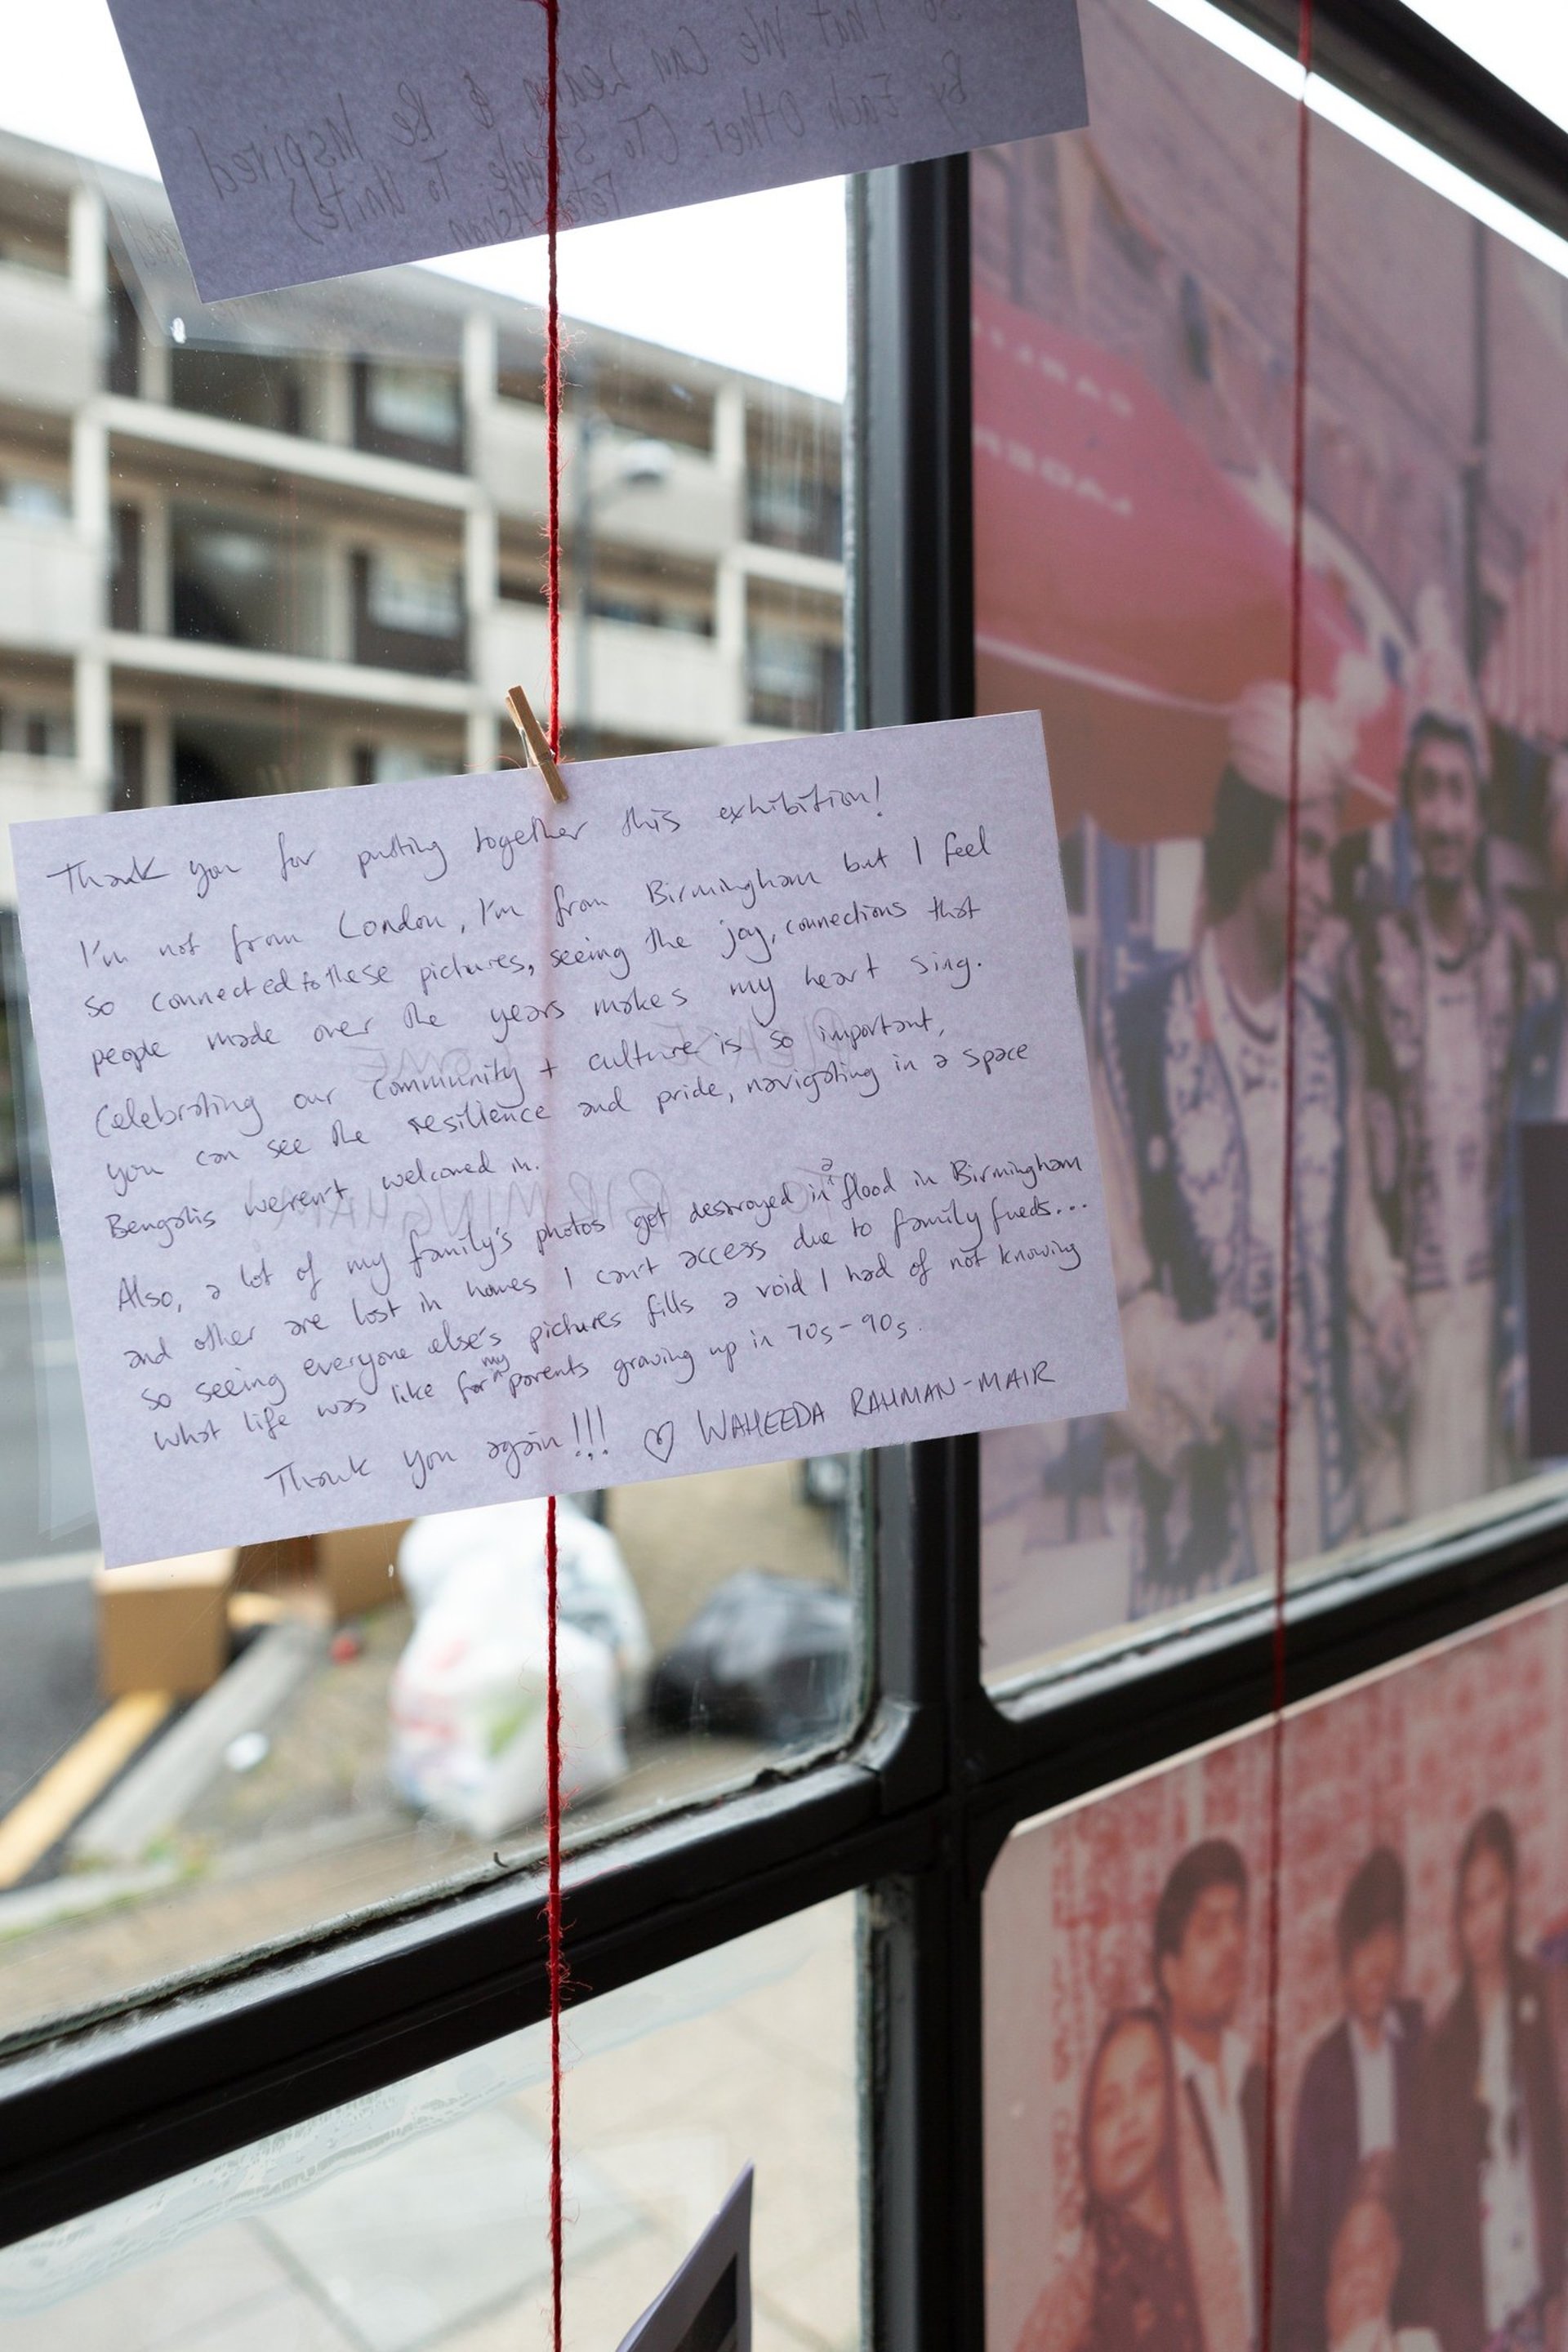 So That We Can Learn & Be Inspired
By Each Other (To Struggle. To Unite)
Thank you for putting together this exhibition!
I'm not from London, I'm from Birmingham but I feel
so connected to these pictures, seeing the joy, connections that
people made over the years makes my heart sing.
Celebrating our community + culture is so important,
you can see the resilience and pride, navigating in a space
Bengalis weren't welcomed in.
Also, a lot of my family's photos got destroyed in a flood in Birmingham
and other are lost in homes I can't access due to family fueds...
so seeing everyone else's pictures fills a void I had of not knowing
what life was like for my parents growing up in 70s-90s.
Thank you again!!! ♡ WAHEEDA RAHMAN-MAIR
PLEASE COME
TO BIRMINGHAM